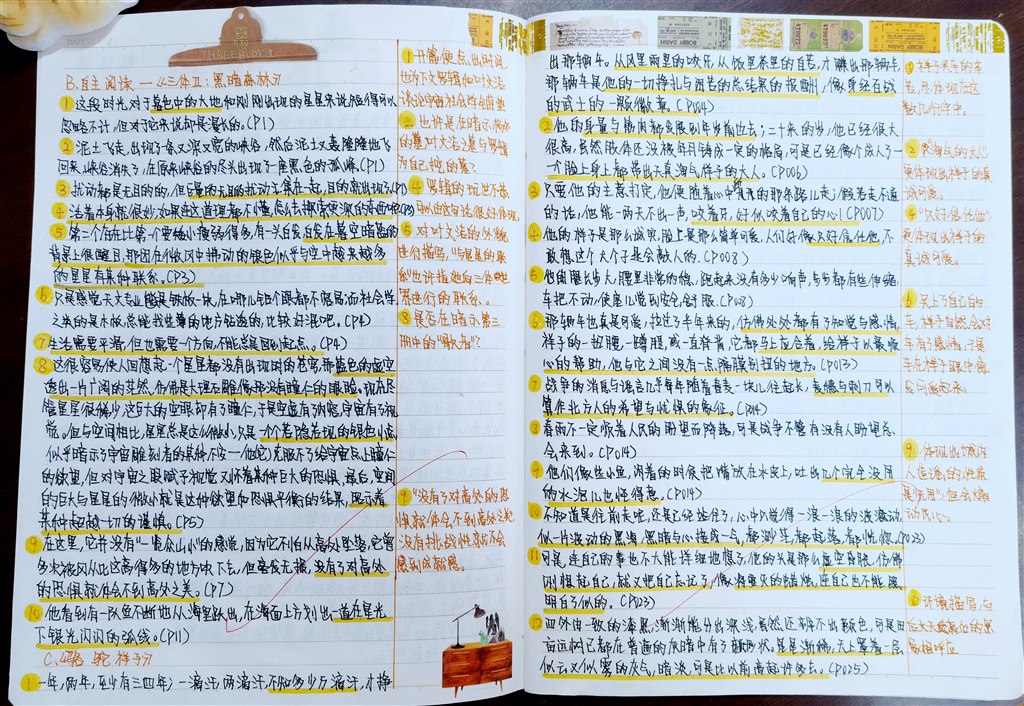 DATE
THREEBODY II
B.自主阅读 —《三体II:黑暗森林》
1 这段时光,对于暮色中的大地和刚刚出现的星星来说短得可以
忽略不计,但对于它来说却是漫长的。(P1)
2 泥土飞走,出现了一条又深又宽的峡谷,然后泥土又轰隆隆地飞
回来,峡谷消失了,在原来峡谷的尽头出现了一座黑色的孤峰。(P1)
3 扰动都是无目的的,但巨量的无目的扰动汇集在一起,目的就出现了。(P1)
4 活着本身就很妙,如果连这道理都不懂,怎么去探索更深的东西呢?
5 第二个存在比第一个要矮小瘦弱得多,有一头白发,白发在暮空暗蓝的
背景上很醒目,那团在微风中拂动的银色似乎与空中越来越多
的星星有某种联系。(P3)
6 只是感觉天文专业就是铁板一块,在哪儿钻个眼都不容易;而社会学
之类的是木板,总能找些薄的地方钻透的,比较好混吧。(P4)
7 生活需要平滑,但也需要一个方向,不能总是回到起点。(P4)
8 这很容易使人回想起一个星星都没有出现时的苍穹,那蓝色的虚空
透出一片广阔的茫然,仿佛是大理石雕像那没有瞳仁的眼睑。现在尽
管星星很稀少,这巨大的空眼却有了瞳仁,于是空虚有了内容,宇宙有了视
觉。但与空间相比,星星总是这么微小,只是一个若隐若现的银色小点,
似乎暗示了宇宙雕刻者的某种不安—他(它)克服不了给宇宙点上瞳仁
的欲望,但对宇宙之眼赋予视觉又怀着某种巨大的恐惧,最后,空间
的巨大与星星的微小就是这种欲望和恐惧平衡的结果,昭示着
某种超越一切的谨慎。(P5)
9 在这里,它并没有“一览众山小”的感觉,因为它不怕从高处坠落,它曾
多次被风从比这高得多的地方吹下去,但毫发无损,没有了对高处
的恐惧就体会不到高处之美。(P7)
10 他看到有一队鱼不断地从海里跃出,在海面上方划出一道在星光
下银光闪闪的弧线。(P11)
C.《骆驼祥子》
1 一年,两年,至少有三四年;一滴汗,两滴汗,不知多少万滴汗,才挣
1 开篇便点出时间,
也为下文罗辑和叶文洁
谈论宇宙社会学
2 也许是在暗示杨冬
的墓,叶文洁之墓与罗辑
为自己挖的墓?
4 罗辑的玩世不恭
可以从这句话很好体现。
5 对叶文洁的外貌
进行描写,“与星星的联
系”也许指她与三体世
界进行的联系。
8 是否在暗示第三
册中的“歌者”?
9 “没有了对高处的恐
惧就体会不到高处之美”
没有挑战性就不会
感到成就感。
出那辆车。从风里雨里的咬牙,从饭里茶里的自苦,才赚出那辆车。
那辆车是他的一切挣扎与困苦的总结果与报酬,像身经百战
的武士的一颗徽章。(P004)
2 他的身量与筋肉都发展到年岁前边去;二十来的岁,他已经很大
很高,虽然肢体还没被年月铸成一定的格局,可是已经像个成人了—
一个脸上身上都带出天真淘气的样子的大人。(P006)
3 只要他的主意打定,他便随着心中所开开的那条路儿走;假若走不通
的话,他能一两天不出一声,咬着牙,好似咬着自己的心!(P007)
4 他的样子是那么诚实,脸上是那么简单可爱,人们好像只好信任他,不
敢想这个大个子是会欺人的。(P008)
5 他的腿长步大,腰里非常的稳,跑起来没有多少响声,步步都有些伸缩,
车把不动,使座儿觉到安全,舒服。(P008)
6 那辆车也真是可爱,拉过了半年来的,仿佛处处都有了知觉与感情,
祥子的一扭腰,一蹲腿,或一直脊背,它都马上应合着,给祥子以最顺
心的帮助,他与它之间没有一点隔膜别扭的地方。(P013)
7 战争的消息与谣言几乎每年随着春麦一块儿往起长,麦穗与刺刀可以
算作北方人的希望与忧惧的象征。(P014)
8 春雨不一定顺着人民的盼望而降落,可是战争不管有没有人盼望总
会来到。(P014)
9 他们像些小鱼,闲着的时候把嘴放在水皮上,吐出几个完全没用
的水泡儿也怪得意。(P014)
10 不知道是往前走呢,还是已经站住了,心中只觉得一浪一浪的波动,
似一片波动的黑海,黑暗与心接成一气,都渺茫,都起落,都恍惚。(P023)
11 可是,连自己的事也不大能详细地想了,他的头是那么虚空昏胀,仿佛
刚想起自己,就又把自己忘记了,像将要灭的蜡烛,连自己也不能照
明白了似的。(P023)
12 四外由一致的漆黑,渐渐能分出深浅,虽然还辨不出颜色,可是田
亩远树已都在普遍的灰暗中有了形状。星星渐稀,天上罩着一层
似云又似雾的灰气,暗淡,可是比以前高起许多去。(P025)